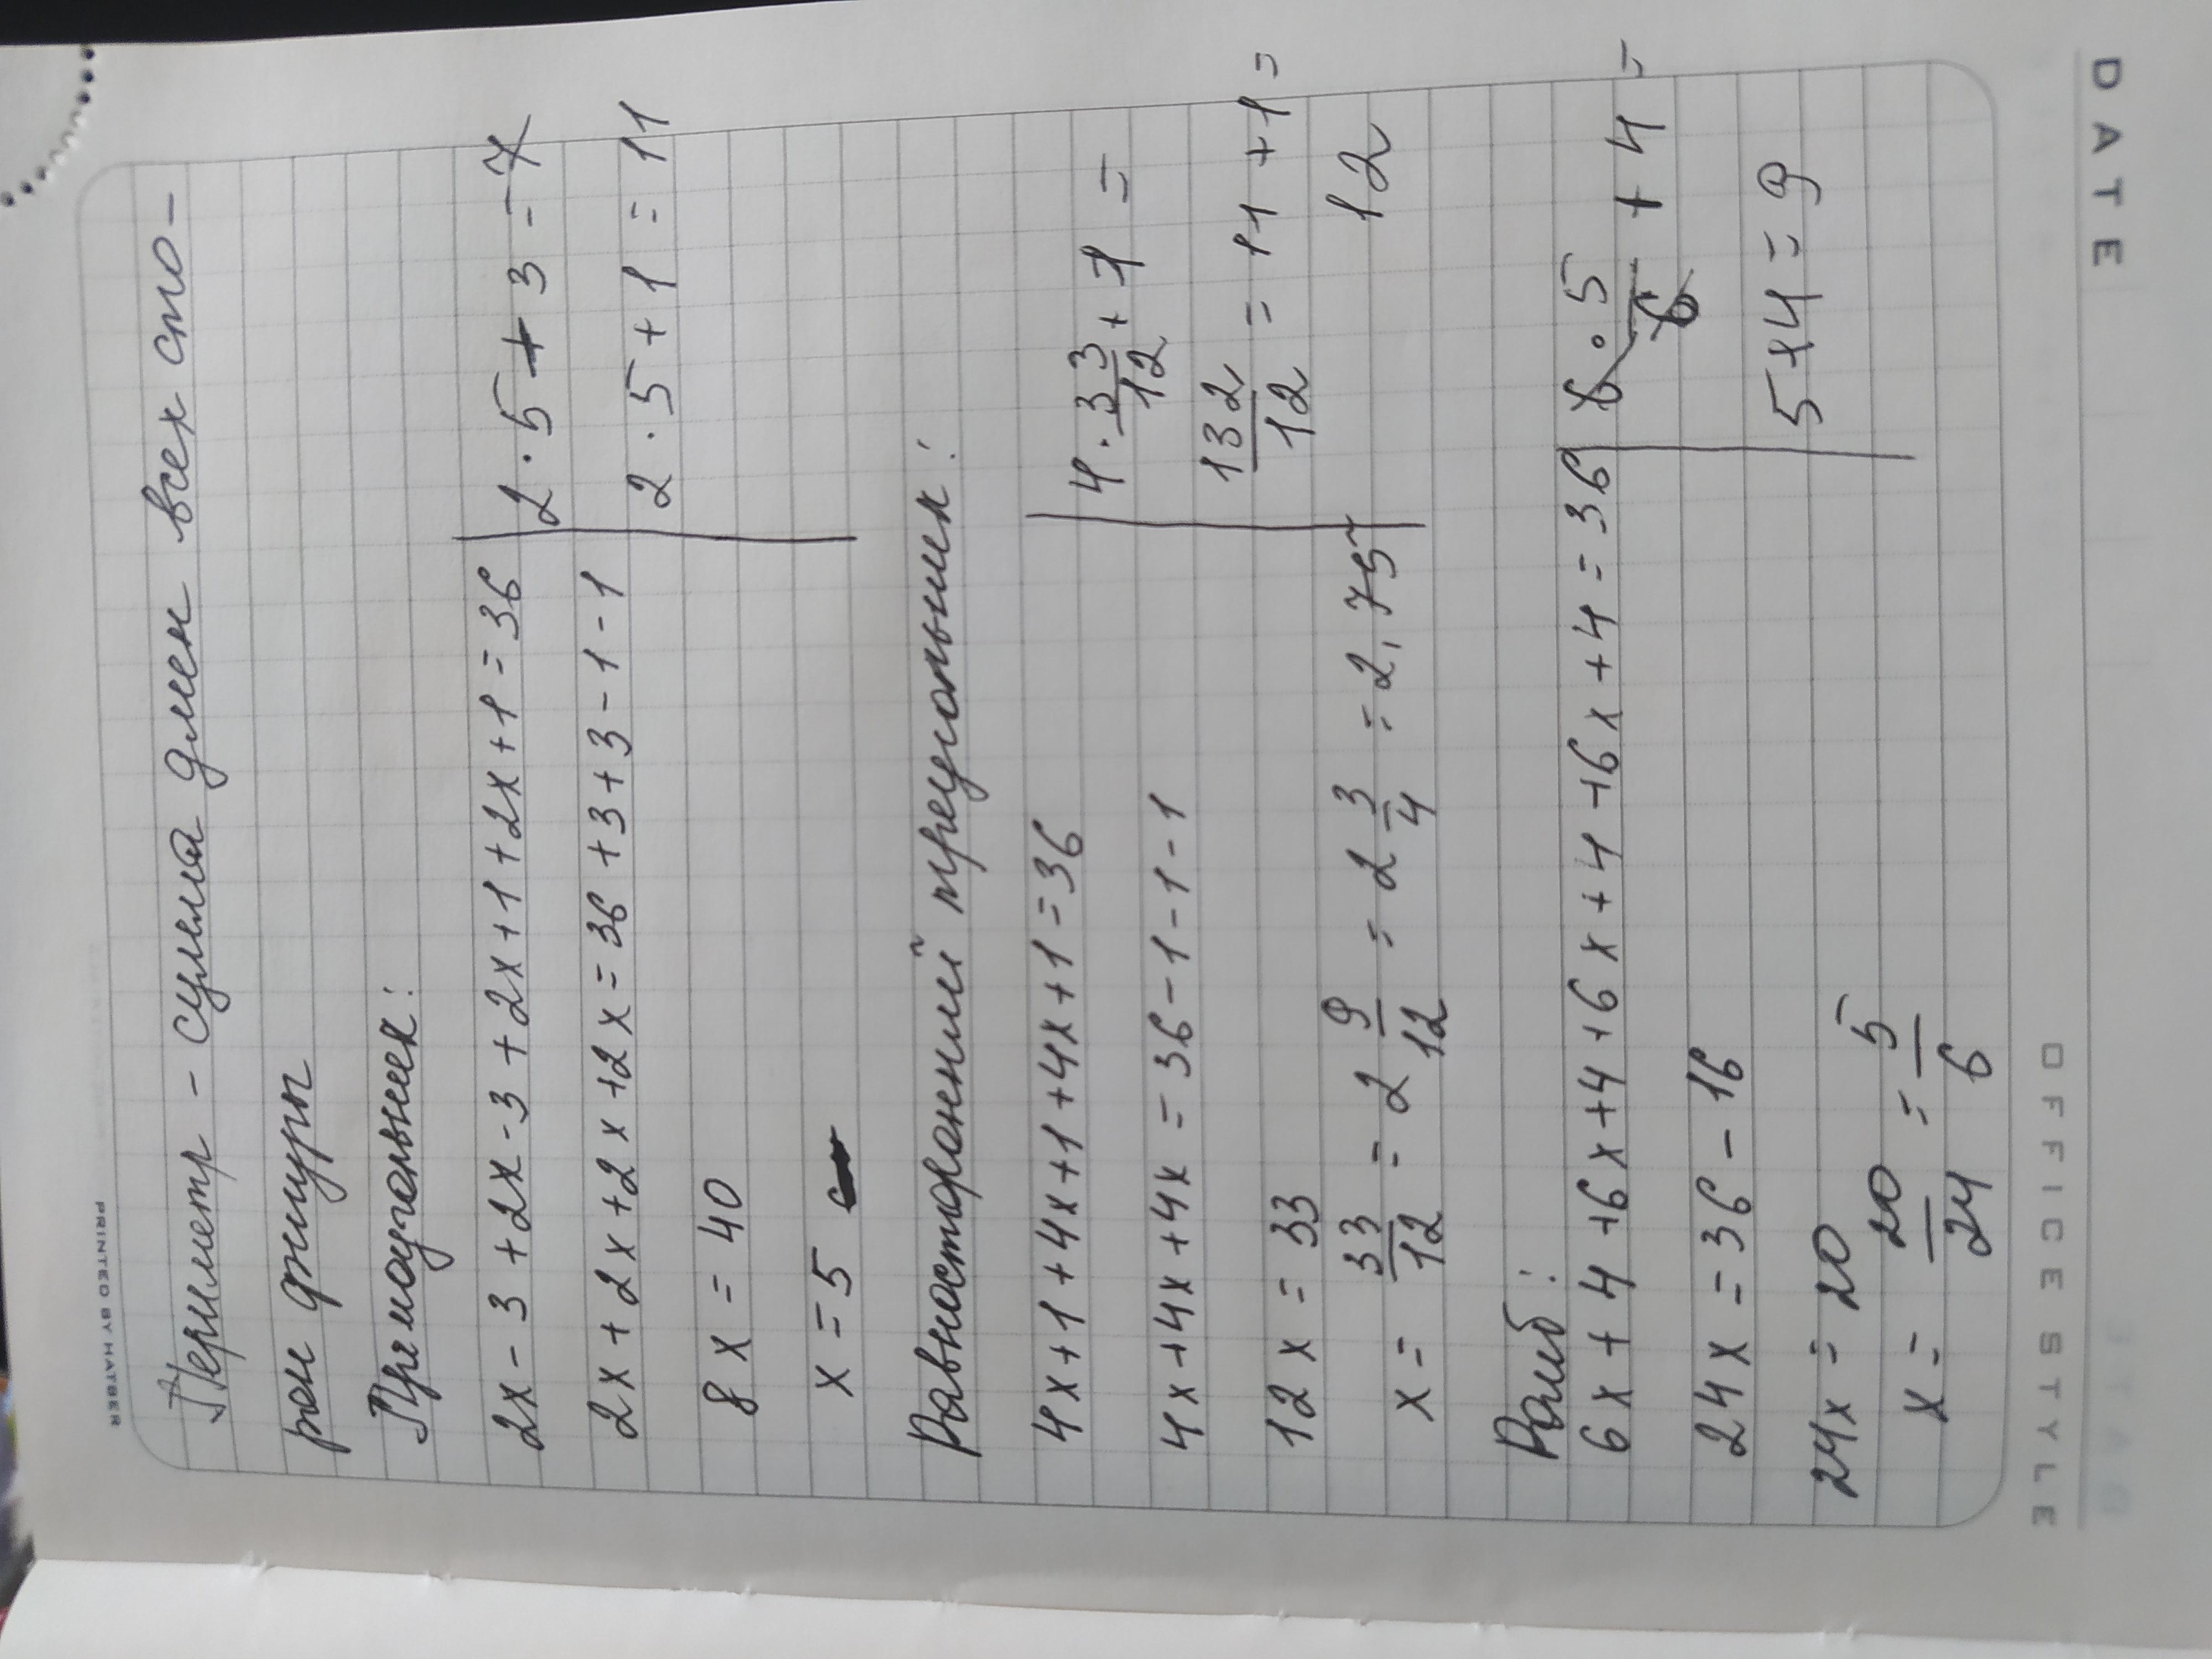 PRINTED BY HATBER
Периметр - сумма длин всех сто-
рон фигуры
Прямоугольник:
2x - 3 + 2x - 3 + 2x + 1 + 2x + 1 = 36 | 2 · 5 + 3 = 7
2x + 2x + 2x + 2x = 36 + 3 + 3 - 1 - 1 | 2 · 5 + 1 = 11
8x = 40
x = 5
Равносторонний треугольник:
4x + 1 + 4x + 1 + 4x + 1 = 36 | 4 · 33/12 + 1 =
4x + 4x + 4x = 36 - 1 - 1 - 1 | 132/12 = 11 + 1 =
12x = 33 | 12
x = 33/12 = 2 9/12 = 2 3/4 = 2,75
Ромб:
6x + 4 + 6x + 4 + 6x + 4 + 6x + 4 = 36 | 6 · 5/6 + 4 =
24x = 36 - 16
24x = 20 | 5 + 4 = 9
x = 20/24 = 5/6
OFFICE STYLE
DATE